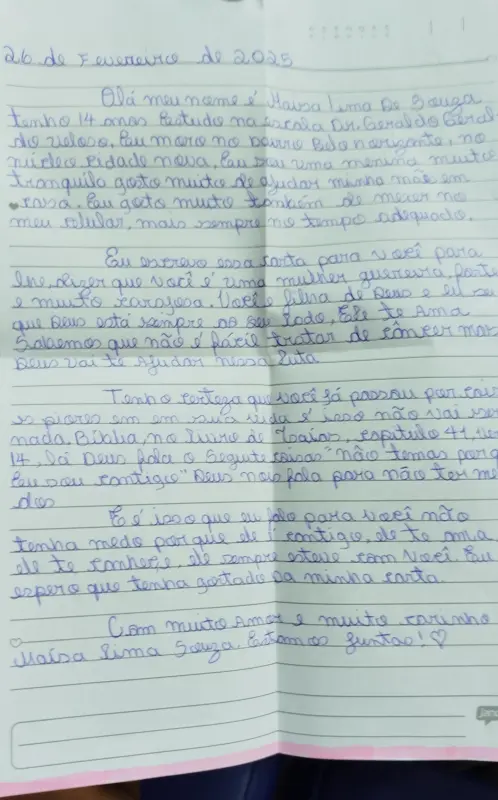 26 de Fevereiro de 2025
Olá meu nome é Maisa Lima De Souza
tenho 14 anos Estudo na escola Dr. Geraldo Geral
do veloso, Eu moro no bairro Belo horizonte, no
núcleo cidade nova, Eu sou uma menina muito
tranquila gosto muito de ajudar minha mãe em
casa. Eu gosto muito também de mexer no
meu celular, mais sempre no tempo adequado.
Eu escrevo essa carta para você para
lhe dizer que você é uma mulher guerreira, forte
e muito corajosa. Você é filha de Deus e eu sei
que Deus está sempre ao seu lado, Ele te Ama
Sabemos que não é fácil tratar de câncer mas
Deus vai te Ajudar nessa luta
Tenho certeza que você já passou por coi
s piores em em sua vida é isso não vai ser
nada, Bíblia, no livro de Isaías, capitulo 41, ver
14, lá Deus fala o Seguinte coisas "não temas porq
Eu sou contigo" Deus nos fala para não ter me
dos
E é isso que eu falo para você não
tenha medo porque ele é contigo, ele te ama,
ele te conhece, ele sempre esteve com você. Eu
espero que tenha gostado Da minha carta.
Com muito Amor e muito carinho
Maísa Lima Souza. Estamos Juntas! ♡